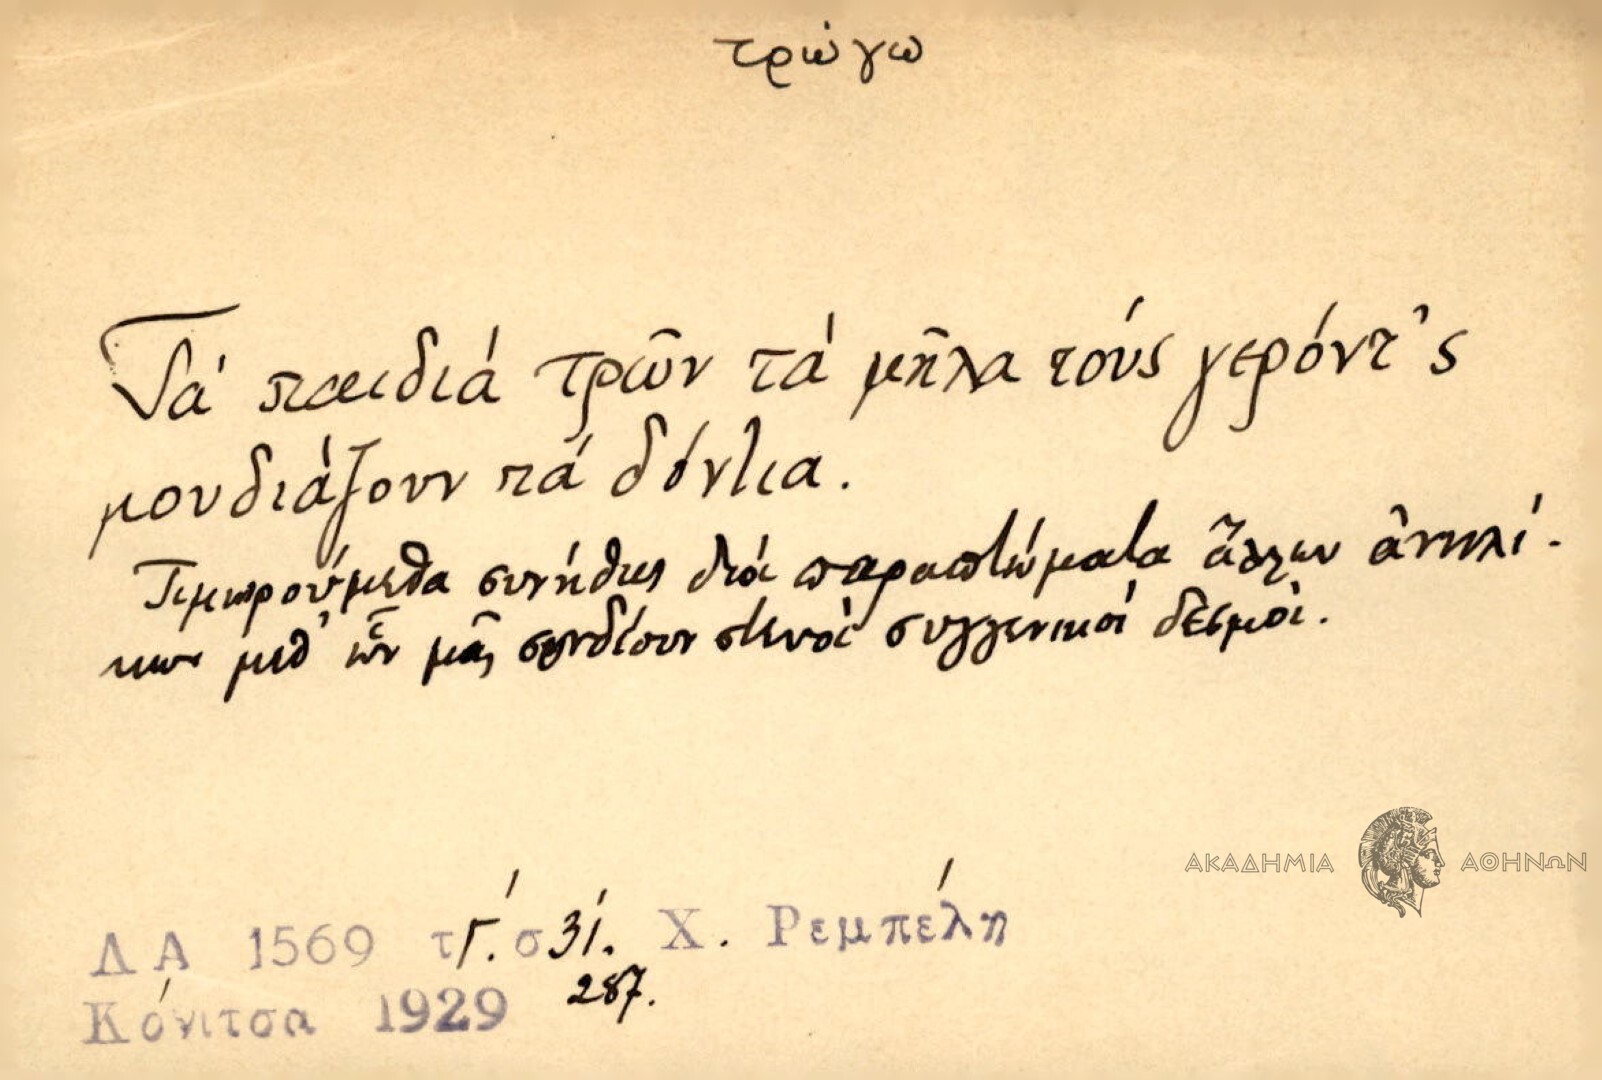 τρώγω
Τά παιδιά τρῶν τά μῆλα τούς γερόντ'ς
μουδιάζουν τά δόντια.
Τιμωρούμεθα συνήθως διά παραπτώματα ἄλλων ἀνηλί-
κων μεθ' ὧν μᾶς συνδέουν στενοί συγγενικοί δεσμοί.
ΑΚΑΔΗΜΙΑ ΑΘΗΝΩΝ
ΛΑ 1569 τΓ'. σ31. Χ. Ρεμπέλη
287.
Κόνιτσα 1929